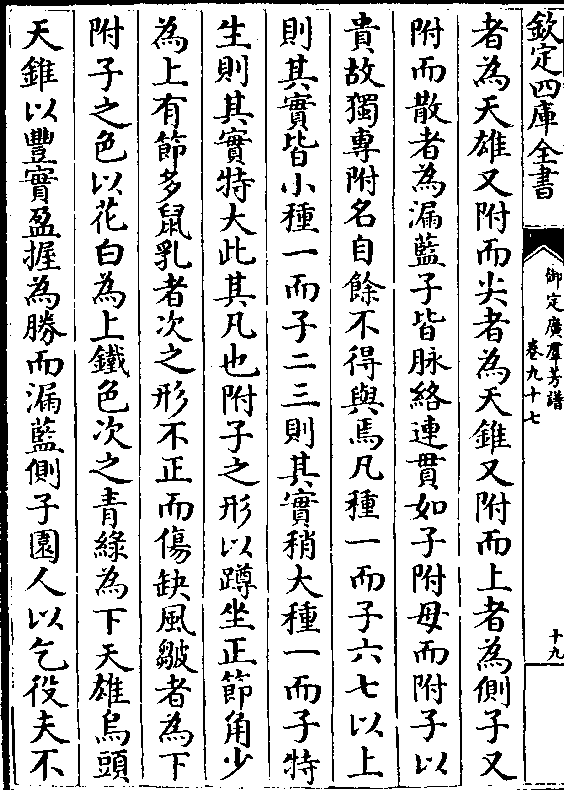 欽定四庫全書
御定廣羣芳譜
卷九十七
十九
者為天雄又附而尖者為天錐又附而上者為側子又
附而散者為漏藍子皆脉絡連貫如子附母而附子以
貴故獨專附名自餘不得與焉凡種一而子六七以上
則其實皆小種一而子二三則其實稍大種一而子特
生則其實特大此其凡也附子之形以蹲坐正節角少
為上有節多鼠乳者次之形不正而傷缺風皺者為下
附子之色以花白為上鐵色次之青綠為下天雄烏頭
天錐以豐實盈握為勝而漏藍側子園人以乞役夫不